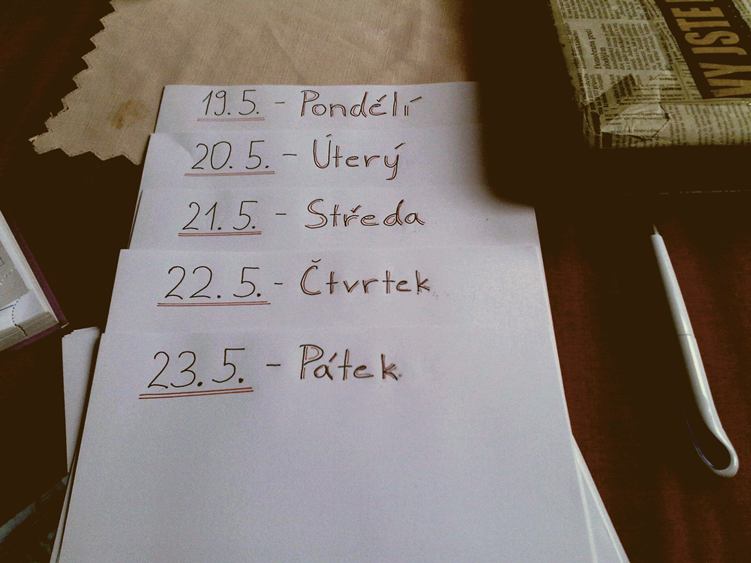 19.5. - Pondělí
20.5. - Úterý
21.5. - Středa
22.5. - Čtvrtek
23.5. - Pátek
VY JSTE